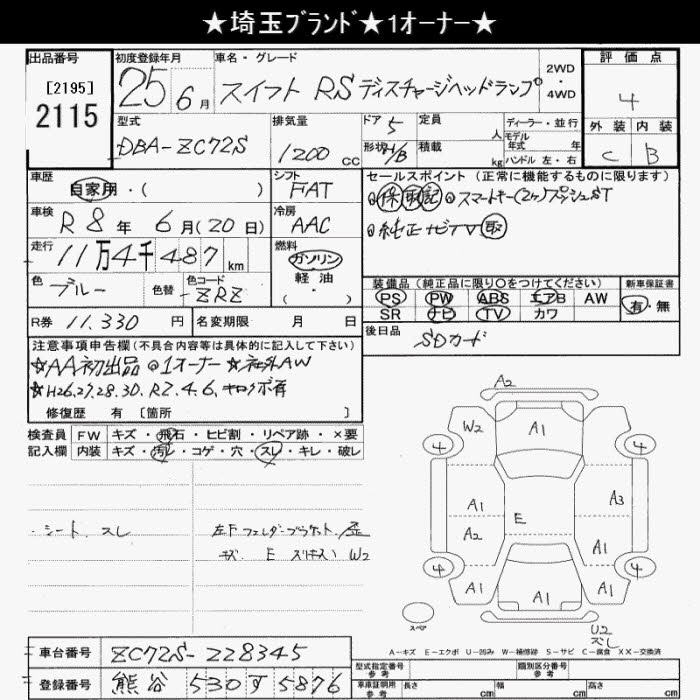 ★埼玉ﾌﾞﾗﾝﾄﾞ★1オーナー★
出品番号 初度登録年月 車名・グレード 評価点
[2195]
2115
25年 6月 スイフト RS ディスチャージヘッドランプ 2WD・4WD 4
型式 排気量 ドア 5 定員 人 ディーラー・並行 外装 内装
DBA-ZC72S 1200 cc 形状 H/B 積載 kg モデル年式 年 ハンドル 左・右 C B
車歴 シフト セールスポイント (正常に機能するものに限ります)
自家用・( ) FAT ◎保 取 記 ◎スマートキー(2ヶ)プッシュST
車検 冷房
R 8年 6月(20日) AAC ◎純正ナビTV 取
走行 燃料
11万4千487km ガソリン 軽油 (・)
色 色替 色コード 装備品(純正品に限り〇をつけてください) 新車保証書
ブルー ZRZ PS PW ABS エアB AW 有・無
SR ナビ TV カワ
R券 11,330円 名変期限 月 日 後日品 SDカード
注意事項申告欄(不具合内容等は具体的に記入して下さい)
☆AA初出品 ◎1オーナー ☆社外AW
☆H26.27.28.30.R2.4.6.キロクボ有
修復歴 有 [箇所 ]
検査員 FW キズ・飛石・ヒビ割・リペア跡・×要
記入欄 内装 キズ・汚レ・コゲ・穴・スレ・キレ・破レ
・シート スレ 左Fフェンダーブラケット歪
キズ E スリキズ W2
A2
W2 A1
4 4
A1 A3
A2 E
4 4
A1 A1 A1
スペア
U2
ズレ
A-キズ E-エクボ U-凹み W-補修跡 S-サビ C-腐食 XX-交換済
車台番号 ZC72S-228345
型式指定番号 参考 類別区分番号 参考
登録番号 熊谷 530 す 5876
車庫証明用 参考 長さ cm 幅 cm 高さ cm